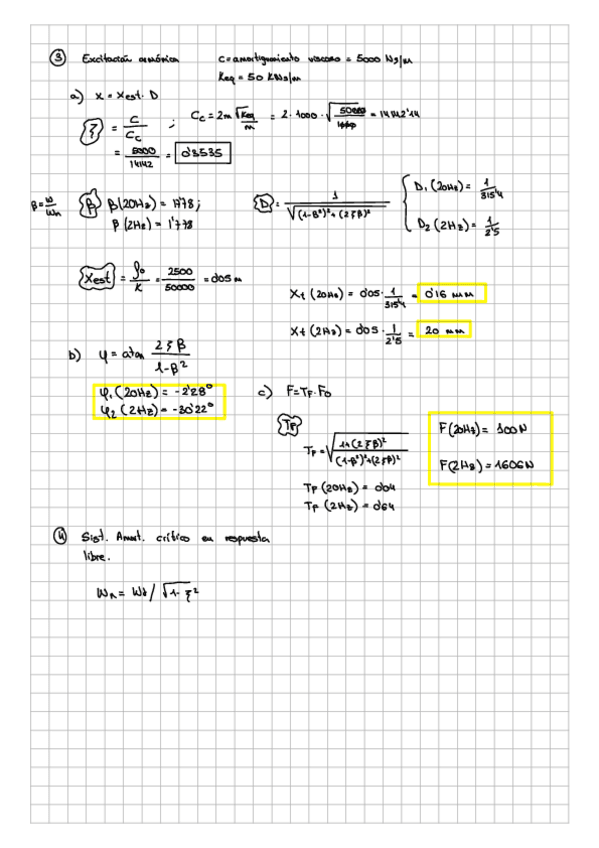 ③ Excitación armónica c = amortiguamiento viscoso = 5000 Ns/m
Keq = 50 KNs/m
a) x = Xest. D
ξ = C/Cc ; Cc = 2m √(Keq/m) = 2·1000·√(50000/1000) = 14142'14
= 5000/14142 = 0'3535
β = w/wn β β(20Hz) = 17'78; D = 1/√((1-β²)²+(2ξβ)²) D₁(20Hz) = 1/315'4
β(2Hz) = 1'778 D₂(2Hz) = 1/2'5
Xest = f₀/K = 2500/50000 = 0'05 m
Xt (20Hz) = 0'05·1/315'4 = 0'16 mm
Xt (2Hz) = 0'05·1/2'5 = 20 mm
b) φ = atan 2ξβ/1-β²
φ₁(20Hz) = -2'28º
φ₂(2Hz) = -30'22º
c) F = TF·F₀
TF
TF = √(1+(2ξβ)²/(1-β²)²+(2ξβ)²)
TF (20Hz) = 0'04
TF (2Hz) = 0'64
F(20Hz) = 100N
F(2Hz) = 1606N
④ Sist. Amort. crítico en respuesta
libre.
Wn = Wd / √1-ξ²